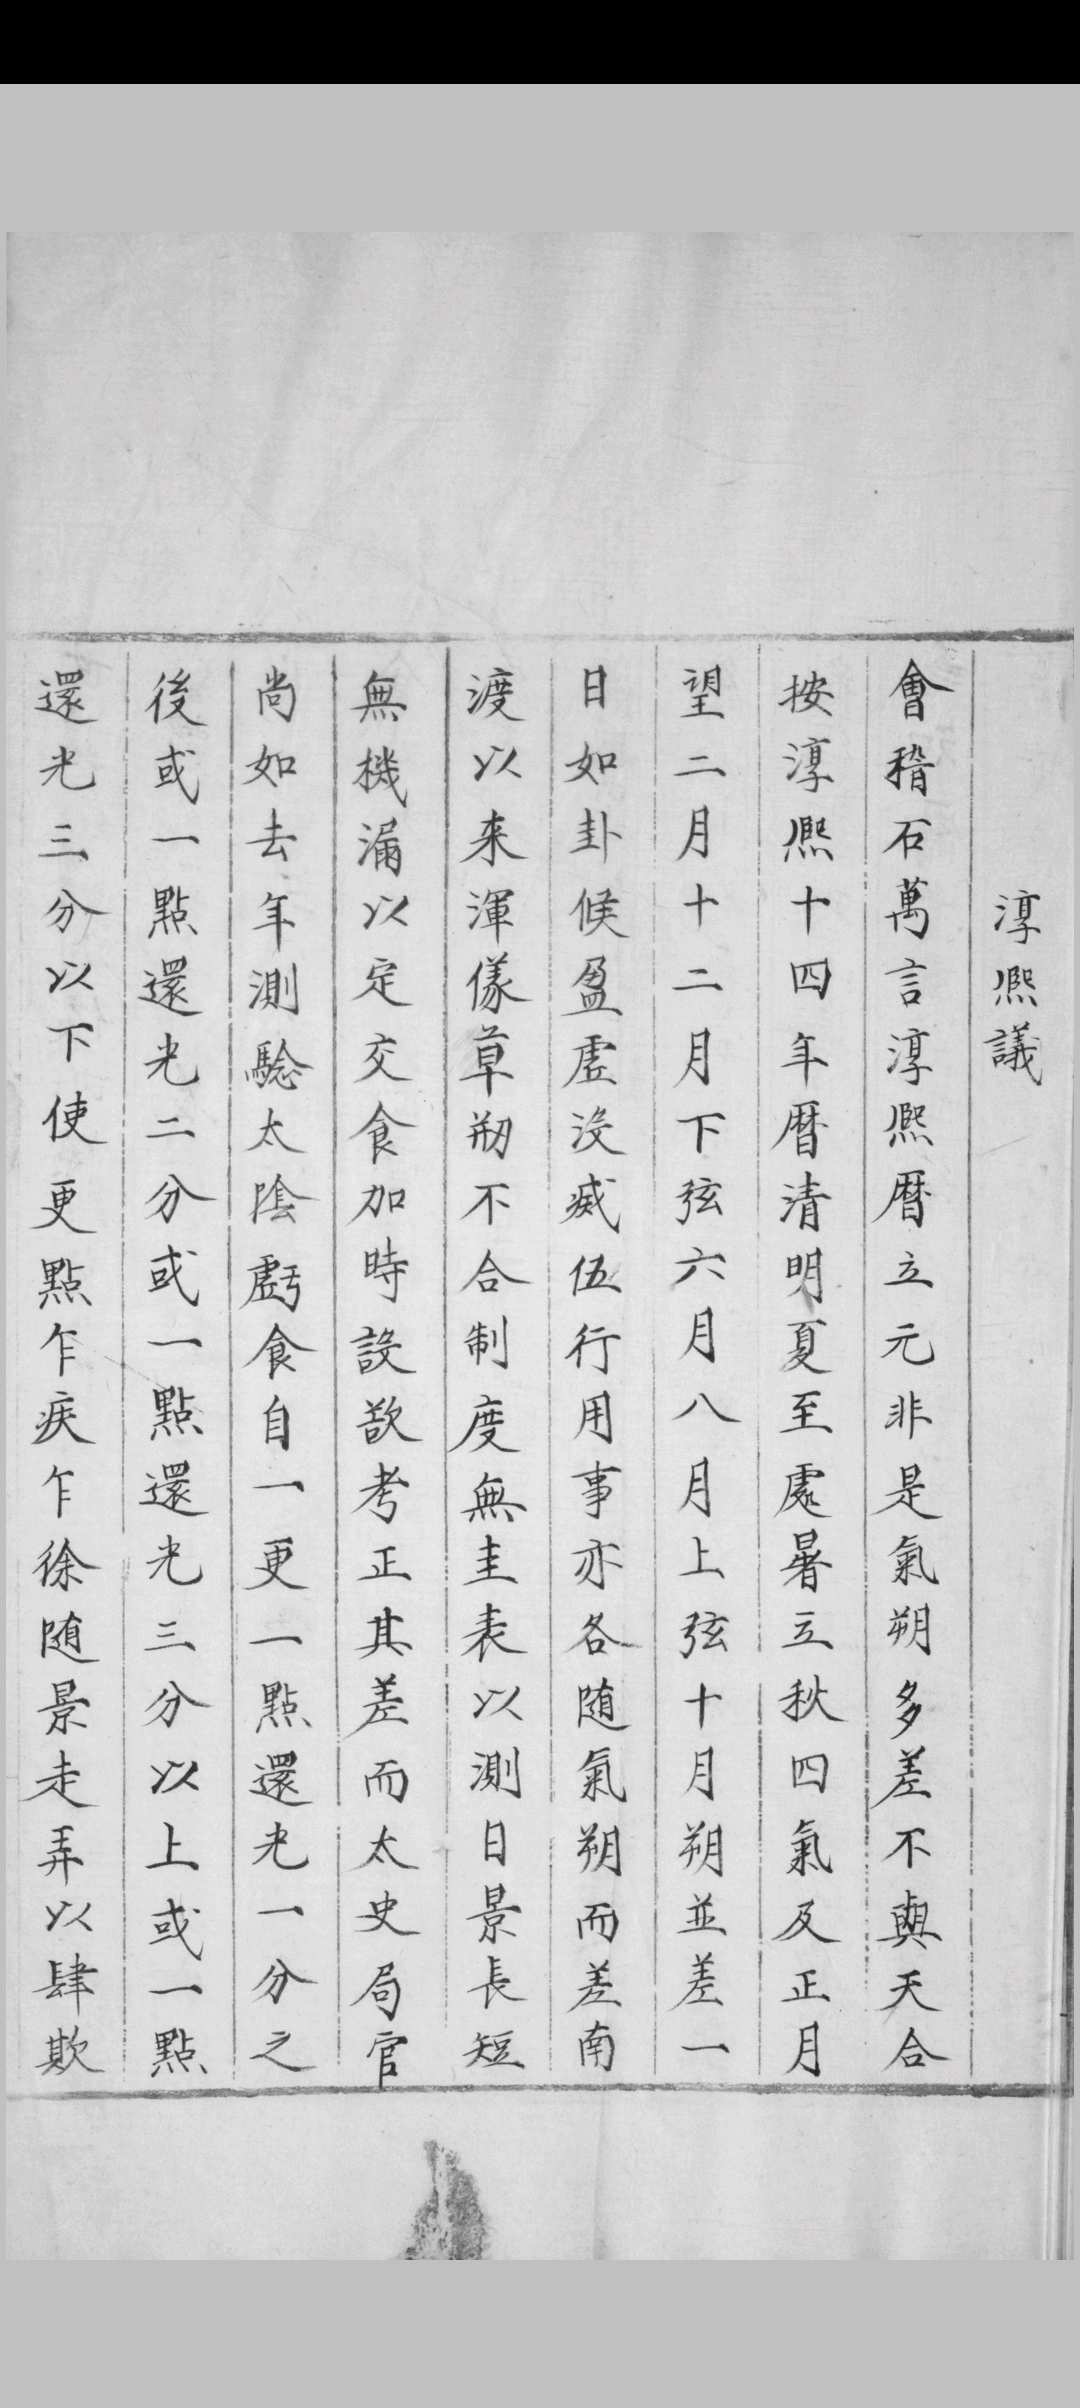 淳熈議
會稽石萬言淳熈暦立元非是氣朔多差不與天合
按淳熈十四年暦清明夏至處暑立秋四氣及正月
望二月十二月下弦六月八月上弦十月朔並差一
日如卦候盈虚没烕伍行用事亦各随氣朔而差南
渡以来渾儀草刱不合制度無圭表以測日景長短
無機漏以定交食加時設欲考正其差而太史局官
尚如去年測驗太陰虧食自一更一點還光一分之
後或一點還光二分或一點還光三分以上或一點
還光三分以下使更點乍疾乍徐随景走弄以肆欺